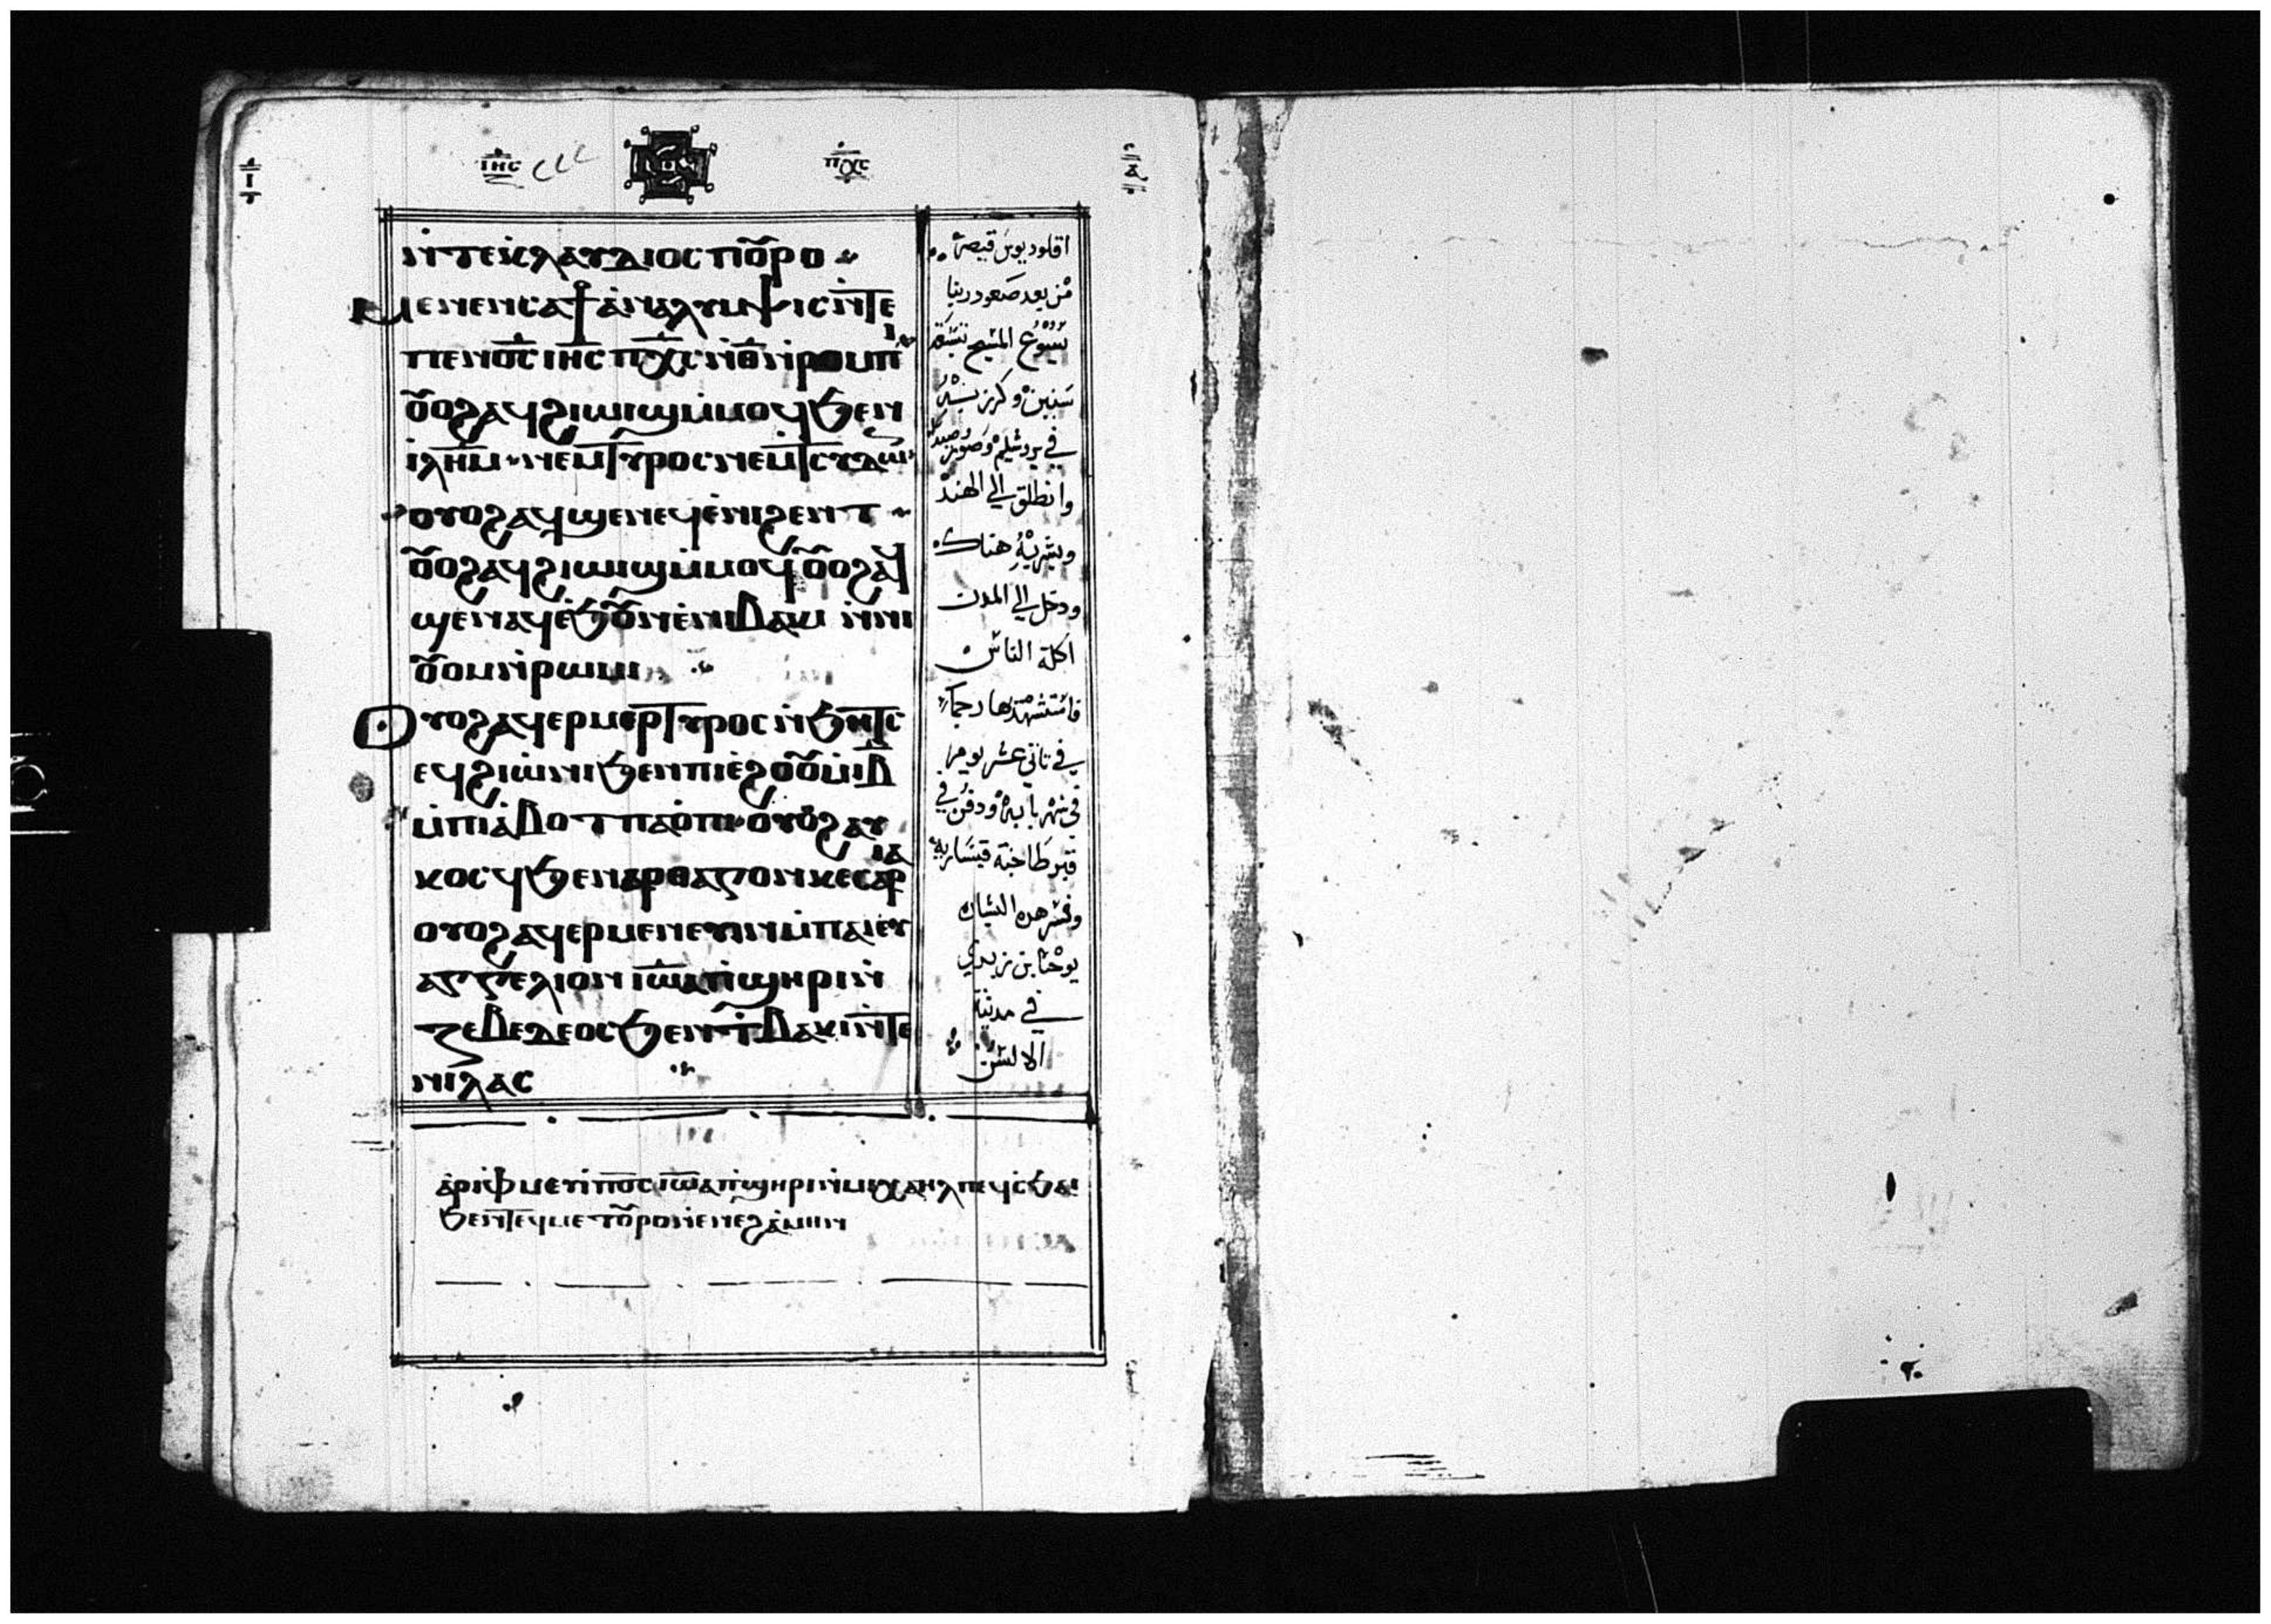 ⲓⲏⲥ ⲡⲭⲥ
ⲛ̀ⲧⲉⲕⲗⲁⲩⲇⲓⲟⲥ ⲡⲟⲩⲣⲟ
ⲙⲉⲛⲉⲛⲥⲁϯⲁ̀ⲛⲁⲗⲩⲙⲯⲓⲥ ⲛ̀ⲧⲉ
ⲡⲉⲛⲟ̅ⲥ̅ ⲓⲏ̅ⲥ̅ ⲡⲭ̅ⲥ̅ ⲛ̀ⲑ̅ ⲛ̀ⲣⲟⲙⲡⲓ
ⲟⲩⲟϩ ⲁϥϩⲓⲱⲓϣ ⲙ̀ⲙⲟϥ ϧⲉⲛ
ⲓ̀ⲗⲏ̅ⲙ̅ ⲛⲉⲙ ⲧⲩⲣⲟⲥ ⲛⲉⲙ ⲧⲥⲩⲇⲱⲛ
ⲟⲩⲟϩ ⲁϥϣⲉⲛⲉϥ ⲉ̀ⲛⲓϩⲉⲛⲧ
ⲟⲩⲟϩ ⲁϥϩⲓⲱⲓϣ ⲙ̀ⲙⲟϥ ⲟⲩⲟϩ ⲁϥ
ϣⲉⲛⲁϥ ⲉ̀ϧⲟⲩⲛ ⲉ̀ⲛⲓⲃⲁⲕⲓ ⲛ̀ⲛⲓ
ⲟⲩⲟⲙⲛ̀ⲣⲱⲙⲓ
ⲟⲩⲟϩ ⲁϥⲉⲣⲙⲉⲣⲧⲩⲣⲟⲥ ⲛ̀ϧⲏⲧⲥ
ⲉϥϩⲓⲱ̀ⲛⲓ ϧⲉⲛ ⲡⲓⲉ̀ϩⲟⲟⲩ ⲙ̀ⲓ̅ⲃ̅
ⲙ̀ⲡⲓⲁ̀ⲃⲟⲧ ⲡⲁⲟ̀ⲡⲓ ⲟⲩⲟϩ ⲁⲩ
ⲕⲟⲥϥ ϧⲉⲛ ⲁⲣⲑⲁⲍⲟⲛ ⲕⲉⲥⲁⲣⲓⲁ
ⲟⲩⲟϩ ⲁϥⲉⲣⲙⲉⲛⲉⲩⲓⲛ ⲙ̀ⲡⲁⲓⲉⲩ
ⲁⲅⲅⲉⲗⲓⲟⲛ ⲓⲱ̅ⲁ̅ ⲡ̀ϣⲏⲣⲓ ⲛ̀
ⲍⲉⲃⲉⲇⲉⲟⲥ ϧⲉⲛ ϯⲃⲁⲕⲓ ⲛ̀ⲧⲉ
ⲛⲓⲗⲁⲥ
اقلوديوس قيصر
من بعد صعود ربنا
يسوع المسيح بتسعة
سنين وكرز بشر
في يرشليم وصور وصيدا
وانطلق الي الهند
وبشر به هناك
ودخل الي المدن
اكلة الناس
فاستشهد بها رجما
في تاني عشر يوم
في شهر بابه ودفن في
قبر طاخنة قيساريه
وفسر هده البشاره
يوحنا بن زبدي
في مدينة
الالسن
ⲁ̀ⲣⲓⲫ̀ⲙⲉⲩⲓ̀ ⲡⲟ̅ⲥ̅ ⲓⲱ̅ⲁ̅ ⲡ̀ϣⲏⲣⲓ ⲙ̀ⲙⲓⲭⲁⲏⲗ ⲡⲉϥⲥϧⲁⲓ
ϧⲉⲛ ⲧⲉϥⲙⲉⲧⲟⲩⲣⲟ ⲛ̀ⲉⲛⲉϩ ⲁ̀ⲙⲏⲛ